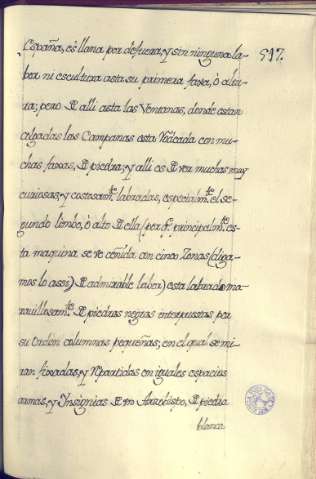 517.
España, es llana por defuera, y sin ninguna la-
bor ni escultura asta su primera faxa, ò altu-
ra; pero de alli asta las Ventanas, donde estan
colgadas las Campanas esta rodeada con mu-
chas faxas, de piedra; y alli es de ver muchas muy
curiosas, y costosamte. labradas, especialmte. el se-
gundo limbo, ò alto de ella (por q. principalmte. es-
ta maquina se ve ceñida con cinco Zonas (diga-
mos lo assi) de admirable labor) esta labrado ma-
ravillosamte. de piedras negras interpuestas por
su Ordèn columnas pequeñas; en el qual se mi-
ran fixadas, y repartidas en iguales espacios
armas, y Insignias de un Arzobispo, de piedra
blanca